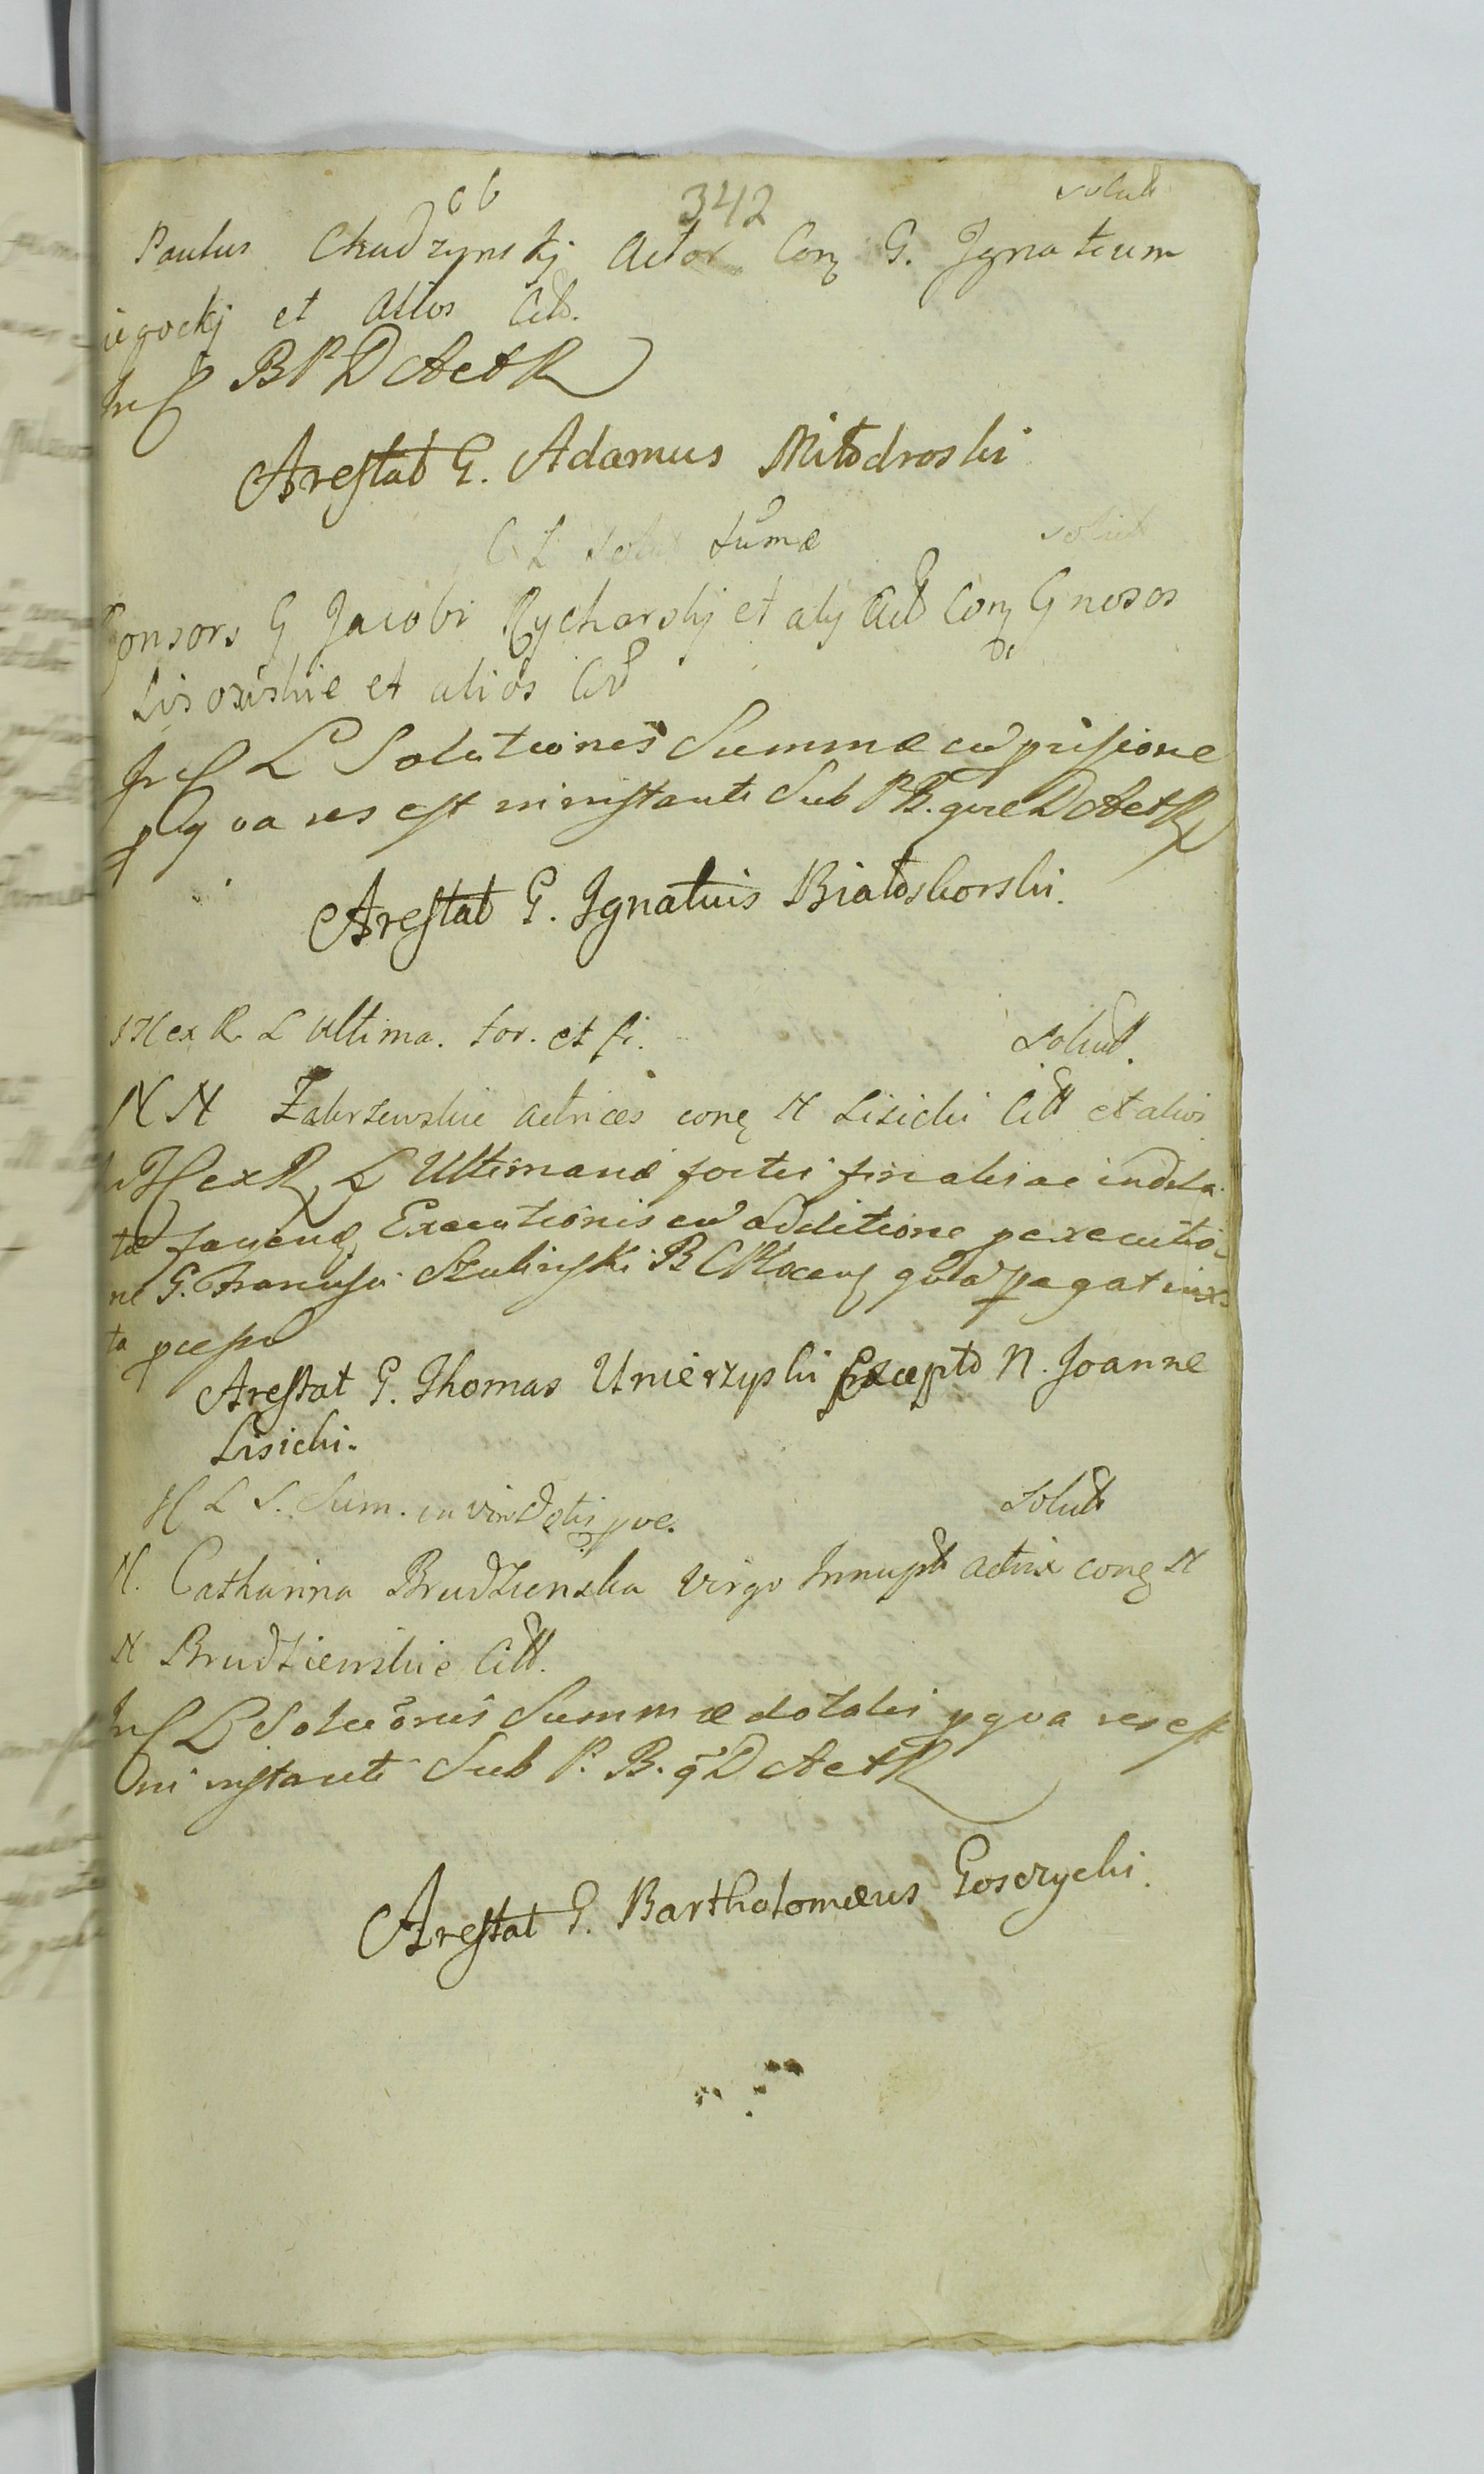 C b 342 solut
Paulus Chudzynskj Actor Conq G. Ignatium
iegockj et Alios Citt.
In C B P D Act R
Arestat G. Adamus Miłodroski
C L Solut Sumæ solut
Consors G Jacobi Rycharskj et alij Act Conq Gnosos
de
Lisowskie et alios Citt
In C L Solutionis Summæ cu prisione
p qva res est ni instanti Sub P B. qve D Act R
Arestat G. Ignatius Białoskorski.
H ex R L Ultima. for. et fi.
Solut.
N N Zakrzewskie actrices conq N Lisicki Citt et alios
In H ex R L Ultimanæ fortis finalis ac indila
tæ faciend Executionis cu additione p executio
ne G. Francisci Szulinski B C pagat iux
ta pcessu
Arestat G. Thomas Unierzyski Excepto N. Joanne
Lisicki.
H L S. Sum. in vim Dotis pve. Solut
N. Catharina Brudzienska Virgo Innupt actrix conq N
N Brudzienskie Citt.
In C L Soluõnis Summæ dotalis p qva res est
ni instanti Sub P. B. q D Act R
Arestat G. Bartholomæus Gosczycki.